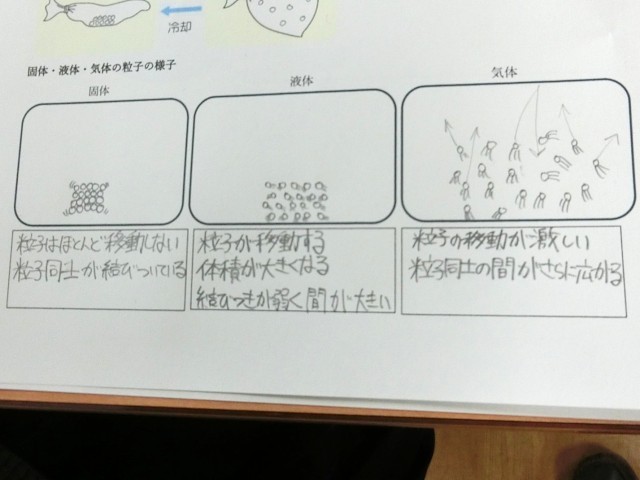 冷却
固体・液体・気体の粒子の様子
固体
液体
気体
粒子はほとんど移動しない
粒子同士が結びついている
粒子が移動する
体積が大きくなる
結びつきが弱く間が大きい
粒子の移動が激しい
粒子同士の間がさらに広がる